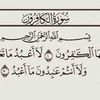 سُورَةُ الكَافِرُونَ
بِسْمِ اللَّهِ الرَّحْمَٰنِ الرَّحِيمِ
ـهَا الْكَٰفِرُونَ ۝ لَا أَعْبُدُ مَا تَعْـ
۝ وَلَا أَنتُمْ عَٰبِدُونَ مَا أَعْبُدُ